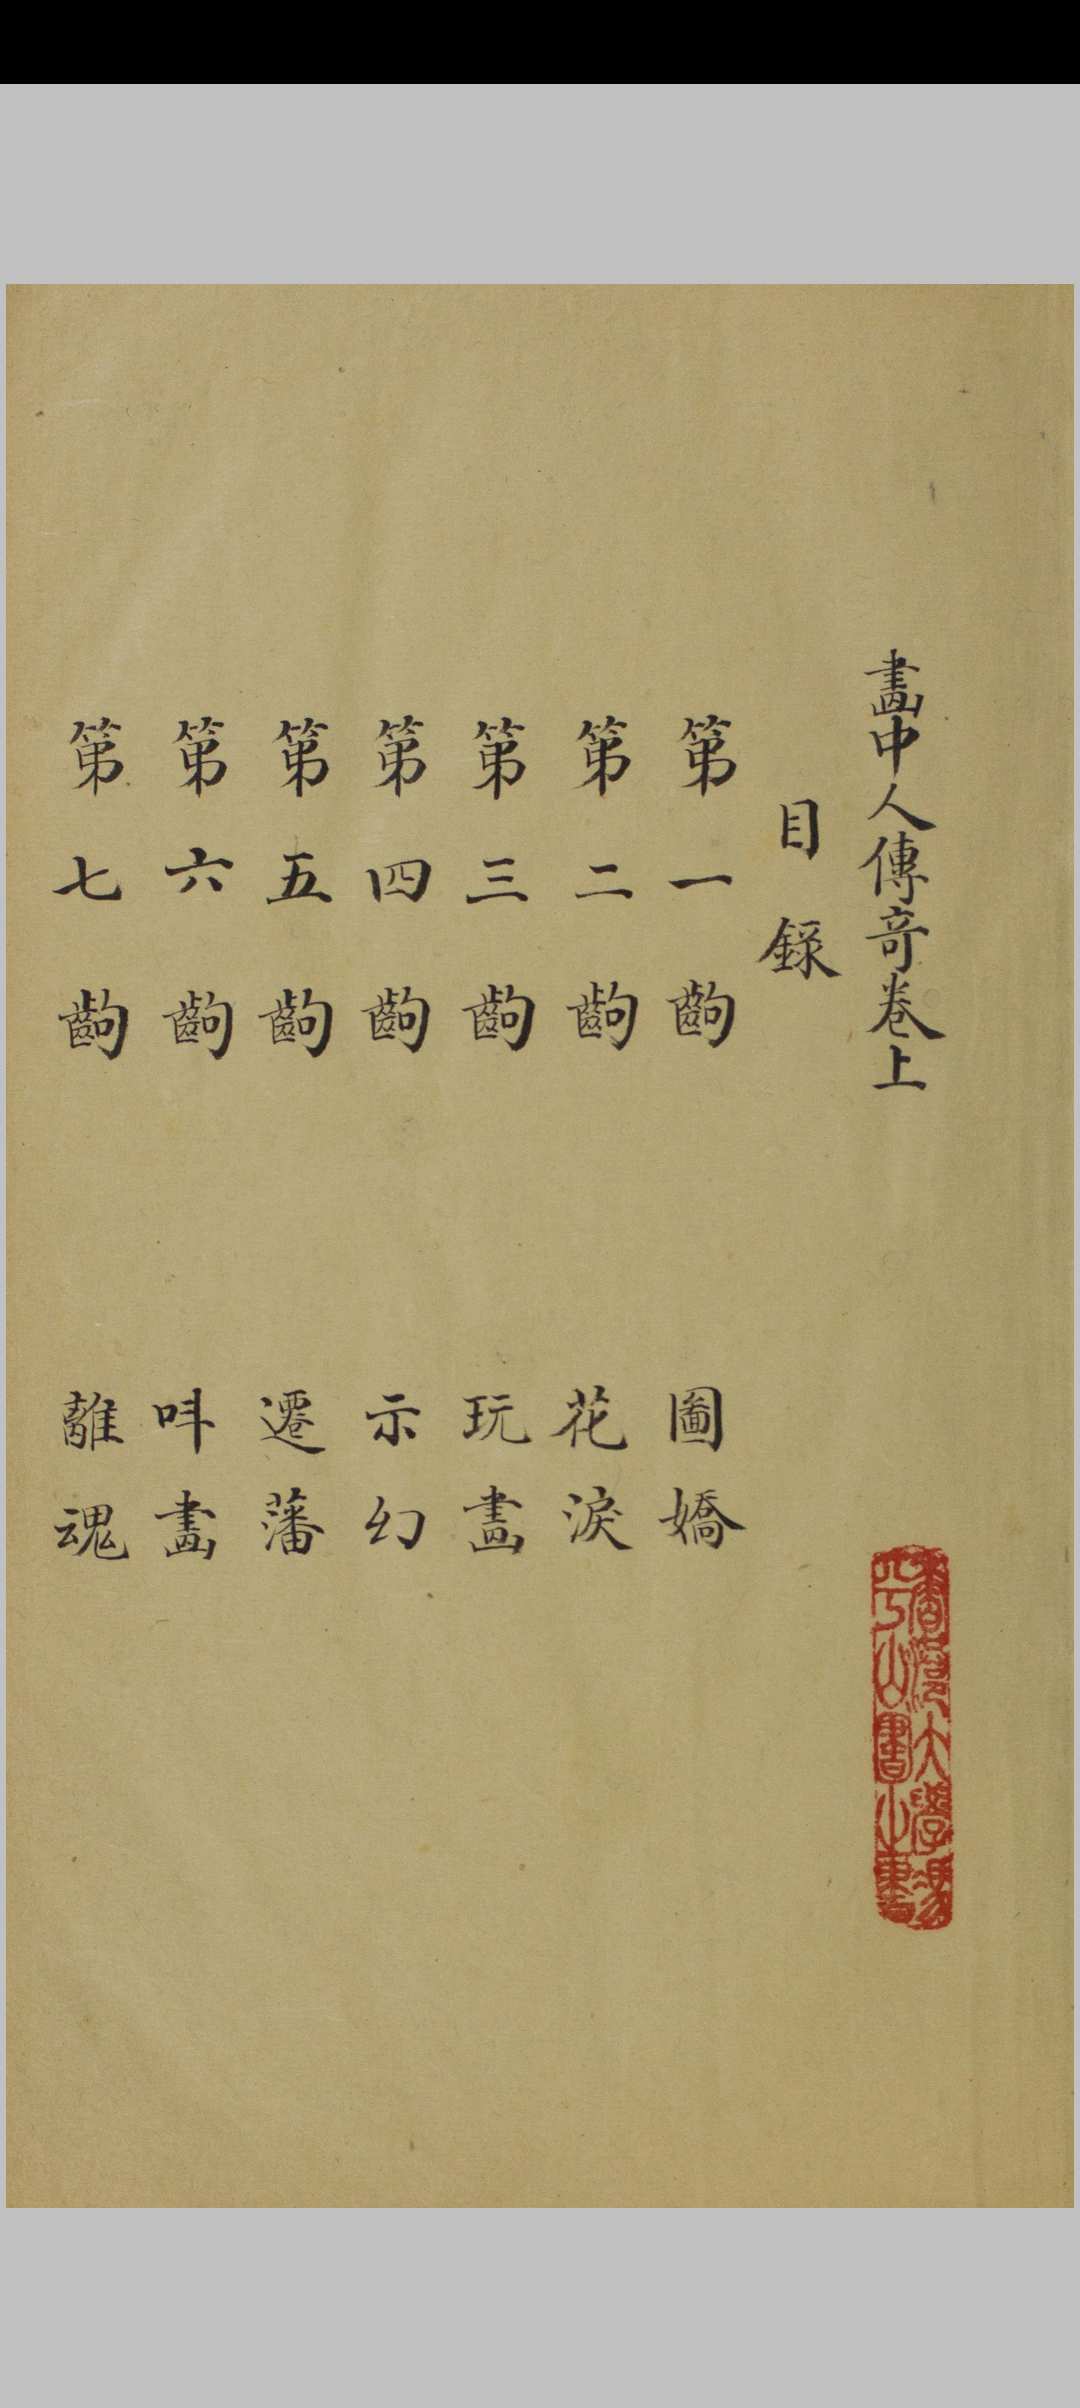 畫中人傳奇卷上
目錄
第一齣 圖嬌
第二齣 花淚
第三齣 玩畫
第四齣 示幻
第五齣 遷藩
第六齣 呌畫
第七齣 離魂
香港大學馮
平山圖書館藏書